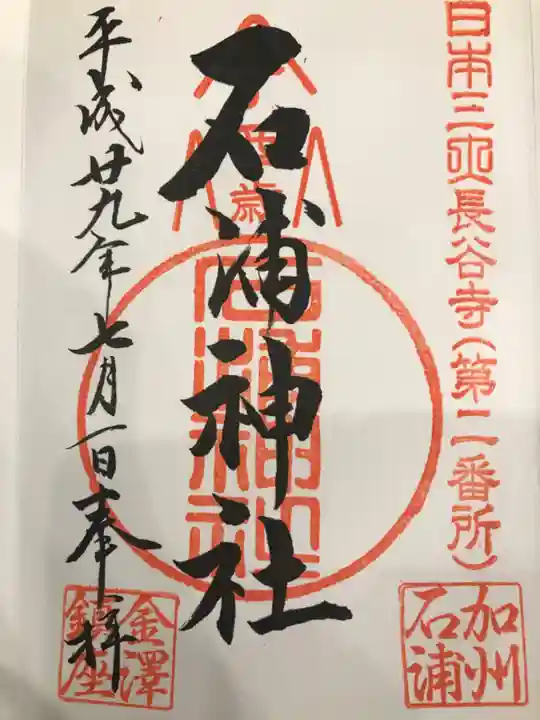 日本三大長谷寺(第二番所)
加州
石浦
石浦神社
平成廿九年七月一日奉拝
金澤
鎮座